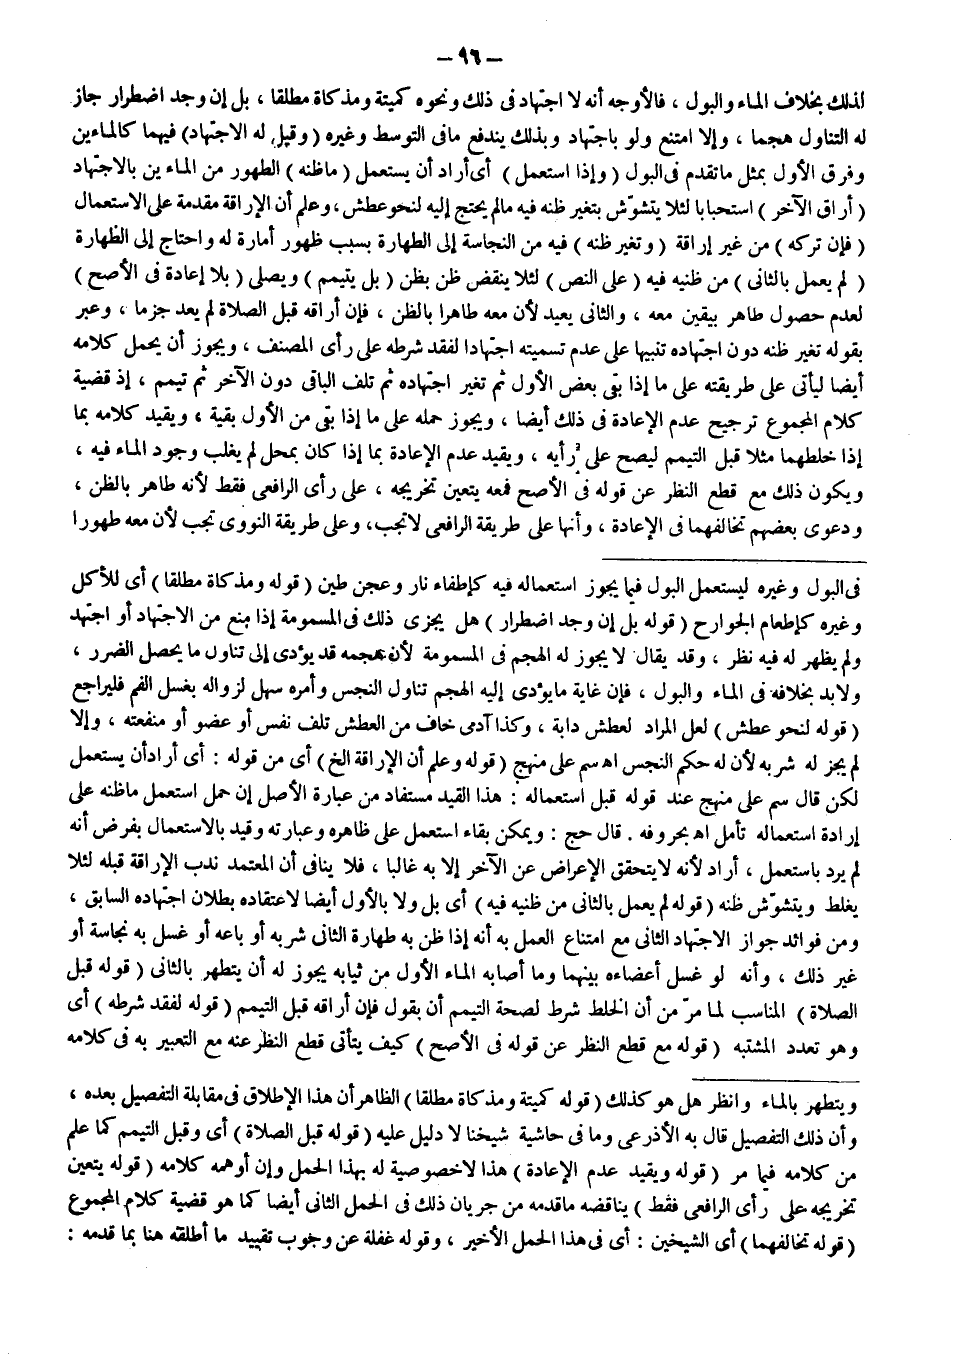 – ٩٦ –
لذلك بخلاف الماء والبول ، فالأوجه أنه لا اجتهاد فى ذلك ونحوه كميتة ومذكاة مطلقا ، بل إن وجد اضطرار جاز
له التناول هجما ، وإلا امتنع ولو باجتهاد وبذلك يندفع مافى التوسط وغيره ( وقيل له الاجتهاد) فيهما كالماءين
وفرق الأول بمثل ماتقدم فى البول ( وإذا استعمل ) أى أراد أن يستعمل ( ماظنه ) الطهور من الماءين بالاجتهاد
( أراق الآخر ) استحبابا لئلا يتشوّش بتغير ظنه فيه مالم يحتج إليه لنحو عطش ، وعلم أن الإراقة مقدمة على الاستعمال
( فإن تركه ) من غير إراقة ( وتغير ظنه ) فيه من النجاسة إلى الطهارة بسبب ظهور أمارة له واحتاج إلى الطهارة
( لم يعمل بالثانى ) من ظنيه فيه ( على النص ) لئلا ينقض ظن بظن ( بل يتيمم ) ويصلى ( بلا إعادة فى الأصح )
لعدم حصول طاهر بيقين معه ، والثانى يعيد لأن معه طاهرا بالظن ، فإن أراقه قبل الصلاة لم يعد جزما ، وعبر
بقوله تغير ظنه دون اجتهاده تنبيها على عدم تسميته اجتهادا لفقد شرطه على رأى المصنف ، ويجوز أن يحمل كلامه
أيضا ليأتى على طريقته على ما إذا بقى بعض الأول ثم تغير اجتهاده ثم تلف الباقى دون الآخر ثم تيمم ، إذ قضية
كلام المجموع ترجيح عدم الإعادة فى ذلك أيضا ، ويجوز حمله على ما إذا بقى من الأول بقية ، ويقيد كلامه بما
إذا خلطهما مثلا قبل التيمم ليصح على رأيه ، ويقيد عدم الإعادة بما إذا كان بمحل لم يغلب وجود الماء فيه ،
ويكون ذلك مع قطع النظر عن قوله فى الأصح فمعه يتعين تخريجه ، على رأى الرافعى فقط لأنه طاهر بالظن ،
ودعوى بعضهم تخالفهما فى الإعادة ، وأنها على طريقة الرافعى لاتجب، وعلى طريقة النووى تجب لأن معه طهورا
فى البول وغيره ليستعمل البول فيما يجوز استعماله فيه كإطفاء نار وعجن طين ( قوله ومذكاة مطلقا ) أى للأكل
وغيره كإطعام الجوارح ( قوله بل إن وجد اضطرار ) هل يجزى ذلك فى المسمومة إذا منع من الاجتهاد أو اجتهد
ولم يظهر له فيه نظر ، وقد يقال لا يجوز له الهجم فى المسمومة لأن هجمه قد يؤدى إلى تناول ما يحصل الضرر ،
ولابد بخلافه فى الماء والبول ، فإن غاية مايؤدى إليه الهجم تناول النجس وأمره سهل لزواله بغسل الفم فليراجع
( قوله لنحو عطش ) لعل المراد لعطش دابة ، وكذا آدمى خاف من العطش تلف نفس أو عضو أو منفعته ، وإلا
لم يجز له شربه لأن له حكم النجس اه سم على منهج ( قوله وعلم أن الإراقة الخ ) أى من قوله : أى أرادأن يستعمل
لكن قال سم على منهج عند قوله قبل استعماله : هذا القيد مستفاد من عبارة الأصل إن حمل استعمل ماظنه على
إرادة استعماله تأمل اه بحروفه . قال حج : ويمكن بقاء استعمل على ظاهره وعبارته وقيد بالاستعمال بفرض أنه
لم يرد باستعمل ، أراد لأنه لايتحقق الإعراض عن الآخر إلا به غالبا ، فلا ينافى أن المعتمد ندب الإراقة قبله لئلا
يغلط ويتشوّش ظنه ( قوله لم يعمل بالثانى من ظنيه فيه ) أى بل ولا بالأول أيضا لاعتقاده بطلان اجتهاده السابق ،
ومن فوائد جواز الاجتهاد الثانى مع امتناع العمل به أنه إذا ظن به طهارة الثانى شربه أو باعه أو غسل به نجاسة أو
غير ذلك ، وأنه لو غسل أعضاءه بينهما وما أصابه الماء الأول من ثيابه يجوز له أن يتطهر بالثانى ( قوله قبل
الصلاة ) المناسب لما مرّ من أن الخلط شرط لصحة التيمم أن يقول فإن أراقه قبل التيمم ( قوله لفقد شرطه ) أى
وهو تعدد المشتبه ( قوله مع قطع النظر عن قوله فى الأصح ) كيف يتأتى قطع النظر عنه مع التعبير به فى كلامه
ويتطهر بالماء وانظر هل هو كذلك ( قوله كميتة ومذكاة مطلقا ) الظاهر أن هذا الإطلاق فى مقابلة التفصيل بعده ،
وأن ذلك التفصيل قال به الأذرعى وما فى حاشية شيخنا لا دليل عليه ( قوله قبل الصلاة ) أى وقبل التيمم كما علم
من كلامه فيما مر ( قوله ويقيد عدم الإعادة ) هذا لاخصوصية له بهذا الحمل وإن أوهمه كلامه ( قوله يتعين
تخريجه على رأى الرافعى فقط ) يناقضه ماقدمه من جريان ذلك فى الحمل الثانى أيضا كما هو قضية كلام المجموع
( قوله تخالفهما ) أى الشيخين : أى فى هذا الحمل الأخير ، وقوله غفلة عن وجوب تقييد ما أطلقه هنا بما قدمه :